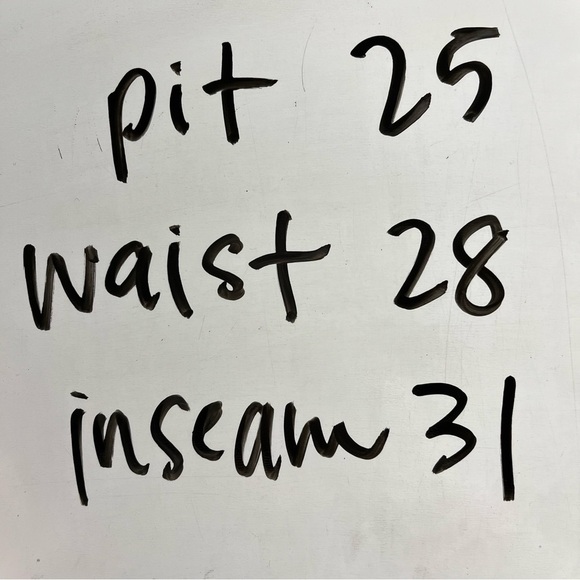 pit 25
waist 28
inseam 31